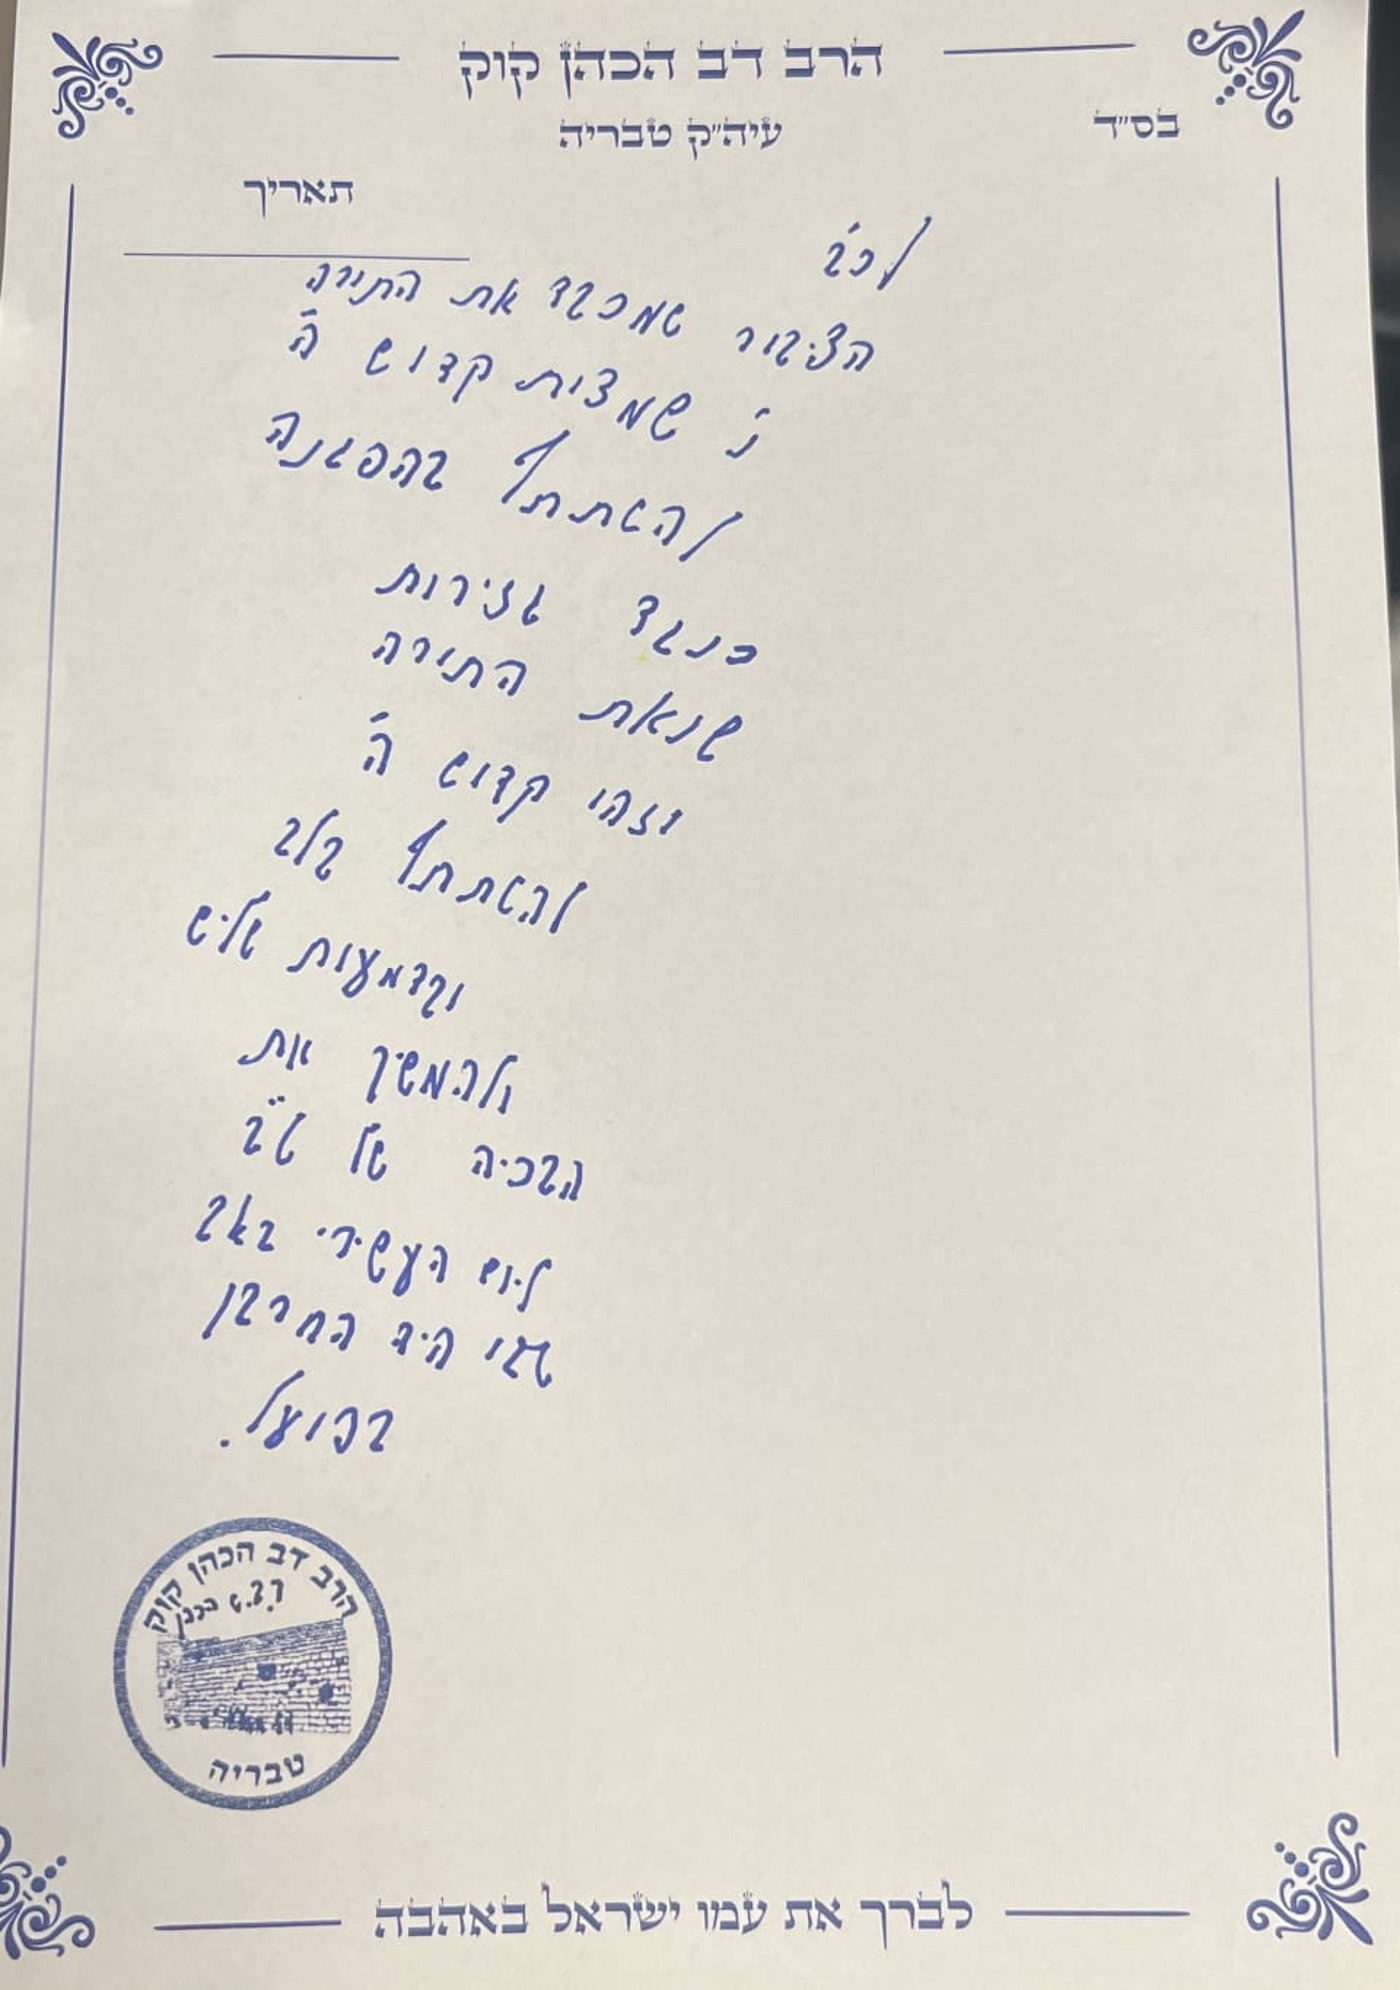 הרב דב הכהן קוק
עיה״ק טבריה
בס״ד
תאריך
לכ׳
הציבור שמכבד את התורה
נ׳ שמצות קדוש ה׳
להשתתף בהפגנה
כנגד גזירות
שנאת התורה
וזהו קדוש ה׳
להשתתף בלב
ובדמעות שליש
ולהמשיך את
הבכיה של ט״ב
ליום העשירי באב
שאז היה החורבן
בפועל.
הרב דב הכהן קוק
טבריה
לברך את עמו ישראל באהבה